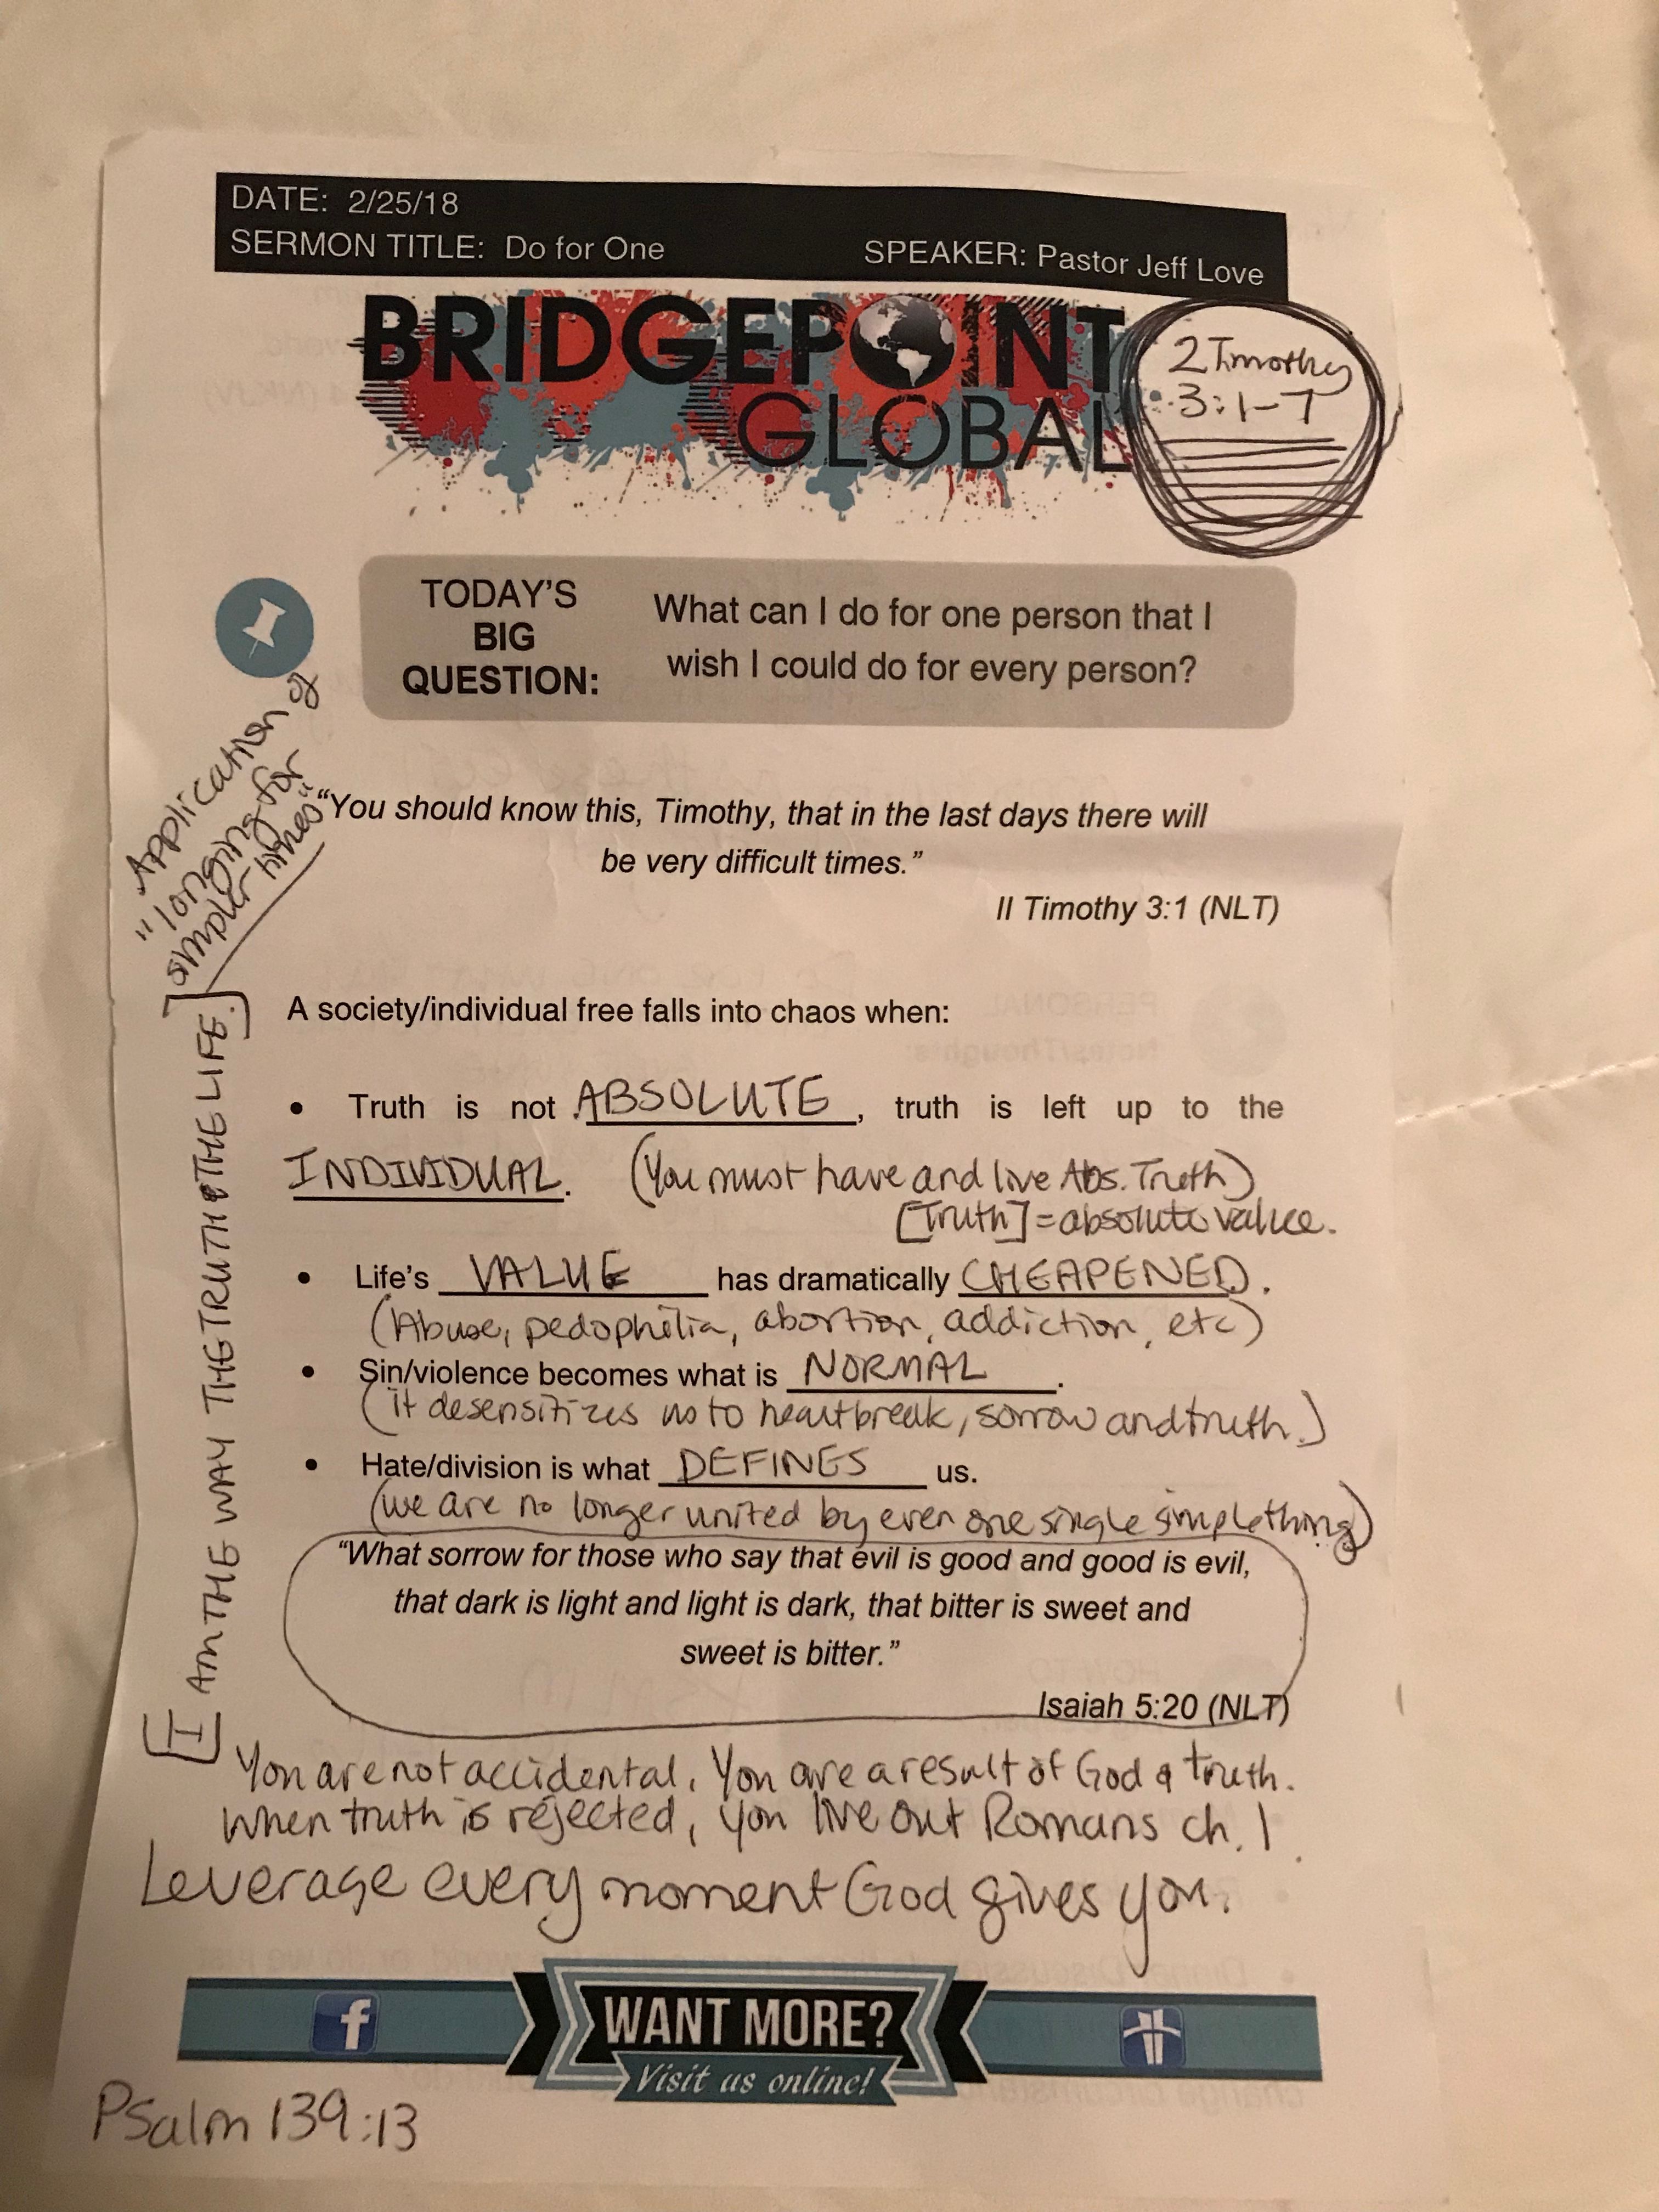 DATE: 2/25/18
SERMON TITLE: Do for One SPEAKER: Pastor Jeff Love
BRIDGEPOINT
GLOBAL
2 Timothy
3:1-7
TODAY'S
BIG
QUESTION:
What can I do for one person that I
wish I could do for every person?
Application of
"longing for
simpler times"
"You should know this, Timothy, that in the last days there will
be very difficult times."
II Timothy 3:1 (NLT)
[I] AM THE WAY THE TRUTH & THE LIFE.]
A society/individual free falls into chaos when:
• Truth is not ABSOLUTE, truth is left up to the
INDIVIDUAL. (You must have and live Abs. Truth)
[Truth] = absolute value.
• Life's VALUE has dramatically CHEAPENED.
(Abuse, pedophilia, abortion, addiction, etc)
• Sin/violence becomes what is NORMAL.
(it desensitizes us to heartbreak, sorrow and truth.)
• Hate/division is what DEFINES us.
(we are no longer united by even one single simple thing)
"What sorrow for those who say that evil is good and good is evil,
that dark is light and light is dark, that bitter is sweet and
sweet is bitter."
Isaiah 5:20 (NLT)
You are not accidental. You are a result of God & truth.
When truth is rejected, you live out Romans ch. 1.
Leverage every moment God gives you.
f
WANT MORE?
Visit us online!
Psalm 139:13